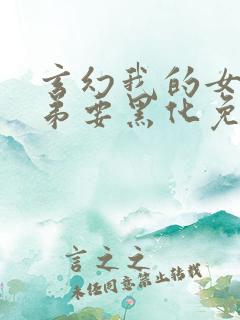 玄幻我的女
弟要黑化免
言之之
未经同意禁止转载